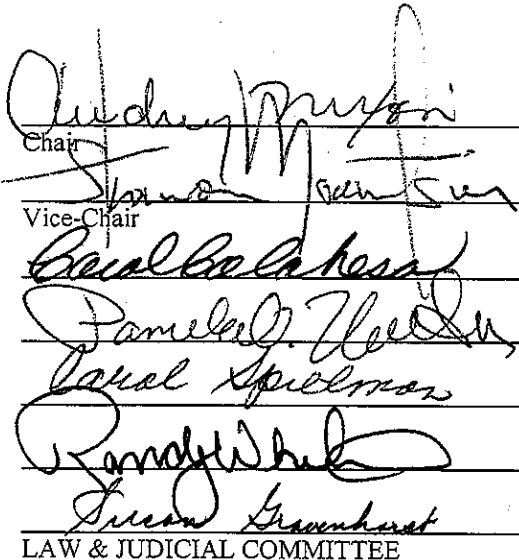 Audrey Nixon
Chair
Vice-Chair
Carol Calabresa
Pamela O.
Carol Spielman
Randy
Susan Gravenhorst
LAW & JUDICIAL COMMITTEE